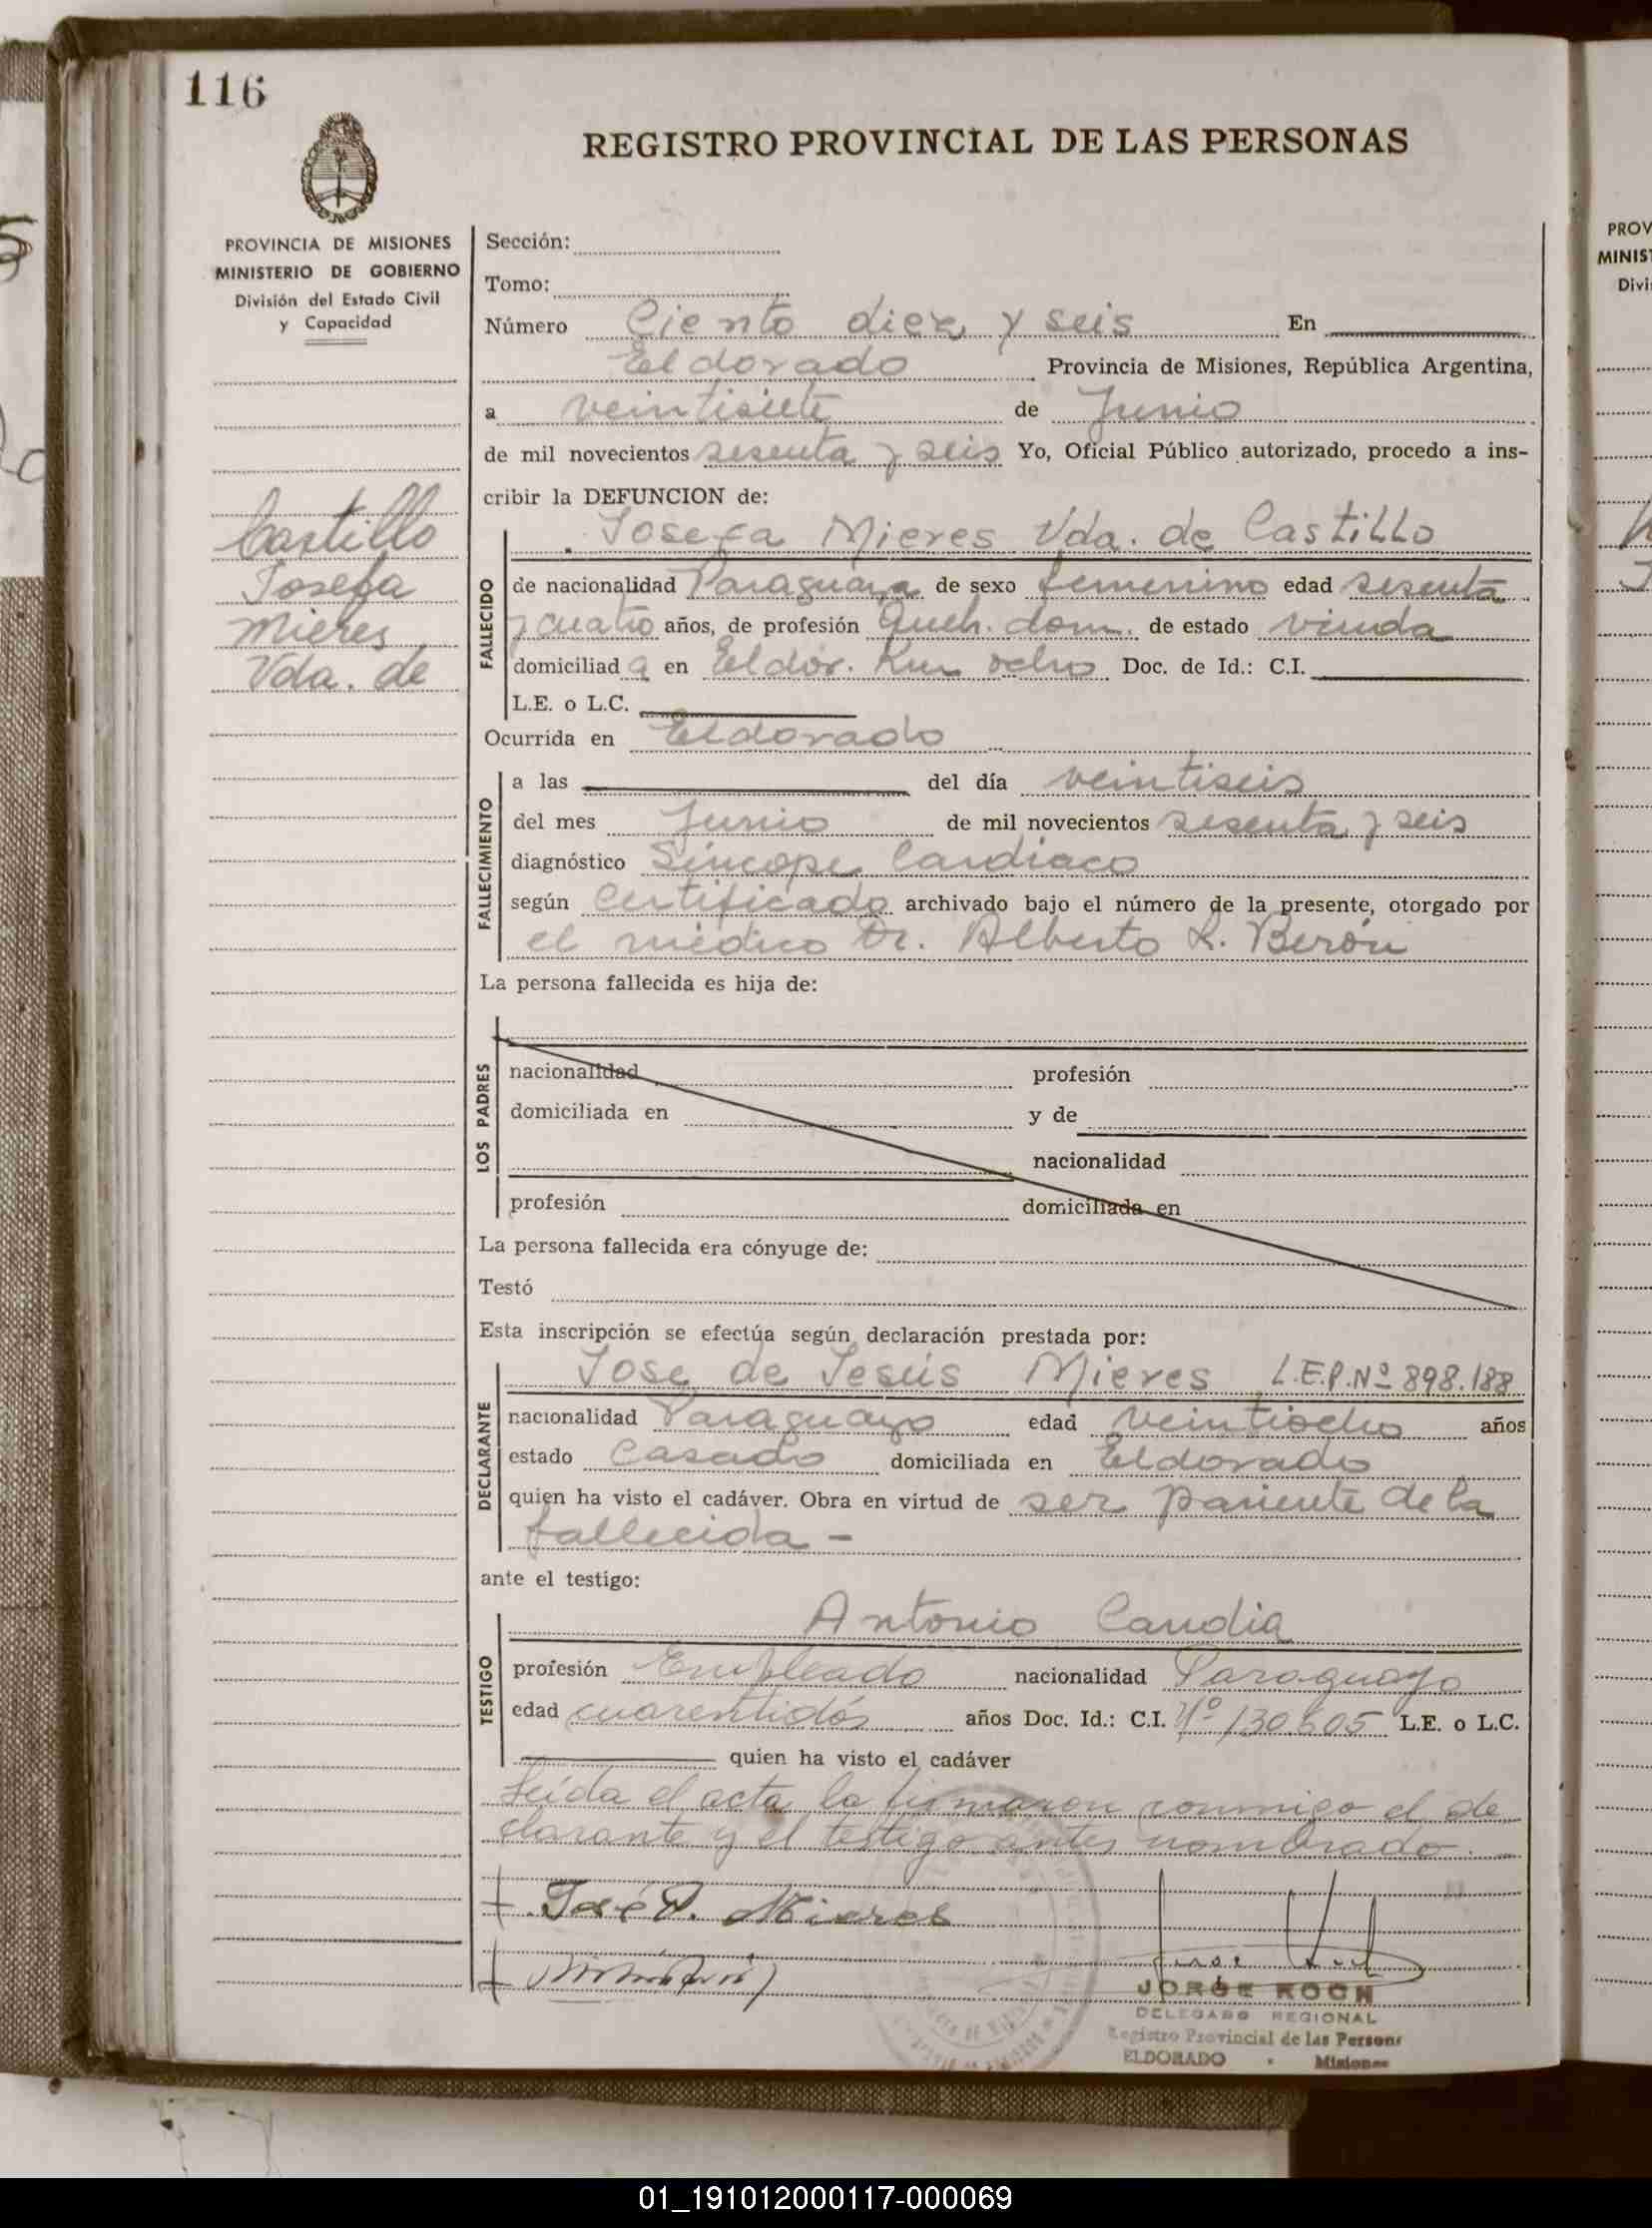 116
REGISTRO PROVINCIAL DE LAS PERSONAS
PROVINCIA DE MISIONES
MINISTERIO DE GOBIERNO
División del Estado Civil
y Capacidad
Castillo
Josefa
Mieres
Vda. de
Sección:
Tomo:
Número Ciento diez y seis En
Eldorado Provincia de Misiones, República Argentina,
a veintisiete de Junio
de mil novecientos sesenta y seis Yo, Oficial Público autorizado, procedo a ins-
cribir la DEFUNCION de:
FALLECIDO
Josefa Mieres Vda. de Castillo
de nacionalidad Paraguaya de sexo femenino edad sesenta
y cuatro años, de profesión Queh. dom. de estado viuda
domiciliada en Eldor. Km ocho Doc. de Id.: C.I.
L.E. o L.C.
Ocurrida en Eldorado
FALLECIMIENTO
a las del día veintiseis
del mes Junio de mil novecientos sesenta y seis
diagnóstico Síncope Cardiaco
según Certificado archivado bajo el número de la presente, otorgado por
el médico Dr. Alberto L. Berón
La persona fallecida es hija de:
LOS PADRES
nacionalidad profesión
domiciliada en y de
nacionalidad
profesión domiciliada en
La persona fallecida era cónyuge de:
Testó
Esta inscripción se efectúa según declaración prestada por:
DECLARANTE
Jose de Jesús Mieres L.E.P.Nº 898.188
nacionalidad Paraguayo edad veintiocho años
estado Casado domiciliada en Eldorado
quien ha visto el cadáver. Obra en virtud de ser pariente de la
fallecida -
ante el testigo:
TESTIGO
Antonio Candia
profesión Empleado nacionalidad Paraguayo
edad cuarentidós años Doc. Id.: C.I. Nº 130.605 L.E. o L.C.
quien ha visto el cadáver
Leída el acta la firmaron conmigo el de
clarante y el testigo antes nombrado.
José D. Mieres
JORGE KOCH
DELEGADO REGIONAL
Registro Provincial de las Persona
ELDORADO - Misiones
PROV
MINIS
Divi
01_191012000117-000069